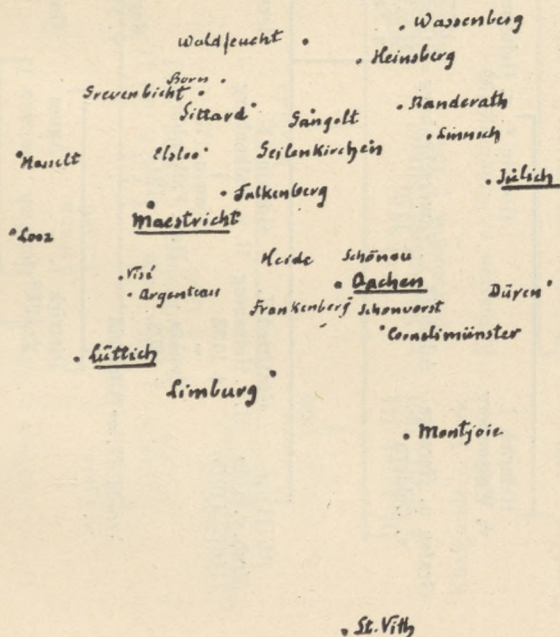 Wassenberg
Waldfeucht
Heinsberg
Born
Grevenbicht
Sittard
Gangolt
Randerath
Linnich
Hasselt
Elsloo
Geilenkirchen
Jülich
Falkenberg
Maestricht
Looz
Heide Schönau
Visé
Aachen
Argenteau
Düren
Frankenberg Schonvorst
Cornelimünster
Lüttich
Limburg
Montjoie
St. Vith